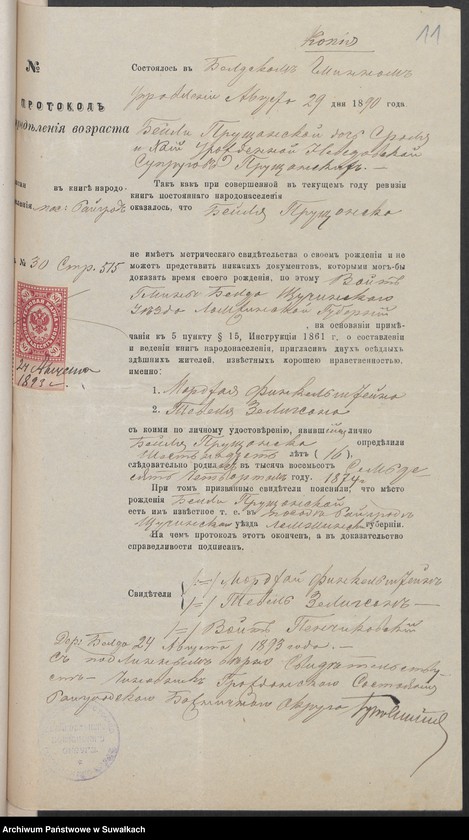 Копія
11
№
ПРОТОКОЛЪ
опредѣленія возраста
Состоялось въ Белдскомъ Гминномъ
Управленіи Августа 29 дня 1890 года.
Бейли Прущанской дочь Сроля
и Хаи урожденной
Супруговъ Прущанскихъ. —
въ книгѣ народо-
пос. Райгродъ
№ 30 Стр. 515
Такъ какъ при совершенной въ текущемъ году ревизіи
книгъ постояннаго народонаселенія
оказалось, что Бейля Прущанска
не имѣетъ метрическаго свидѣтельства о своемъ рожденіи и не
можетъ представить никакихъ документовъ, которыми могъ-бы
доказать время своего рожденія, по этому Войтъ
Гмины Белда Щучинскаго
Уѣзда Ломжинской Губерніи
, на основаніи примѣ-
чанія къ 5 пункту § 15, Инструкціи 1861 г. о составленіи
и веденіи книгъ народонаселенія, пригласивъ двухъ осѣдлыхъ
здѣшнихъ жителей, извѣстныхъ хорошею нравственностью,
именно:
1. Мордхая Финкельштейна
2. Тевеля Зелигсона
съ коими по личному удостовѣренію, явившейся лично
Бейля Прущанска опредѣлили
Шестнадцать лѣтъ (16),
слѣдовательно родилась въ тысяча восемьсотъ Семьде-
сятъ Четвертомъ году. 1874
При томъ призванные свидѣтели пояснили, что мѣсто
рожденія Бейли Прущанской
есть имъ извѣстное т. е. въ посадѣ Райгродъ
Щучинскаго уѣзда Ломжинской губерніи.
На чемъ протоколъ этотъ оконченъ, а въ доказательство
справедливости подписанъ.
24 Августа
1893 г.
Свидѣтели
/—/ Мордхай Финкельштейнъ
/—/ Тевель Зелигсонъ —
/—/ Войтъ Пенчиковскій
Дер. Белда 24 Августа 1893 года. —
Съ подлиннымъ вѣрно Свидѣтельству-
етъ — Чиновникъ Гражданскаго Состоянія
Райгродскаго Божничнаго Округа
Archiwum Państwowe w Suwałkach